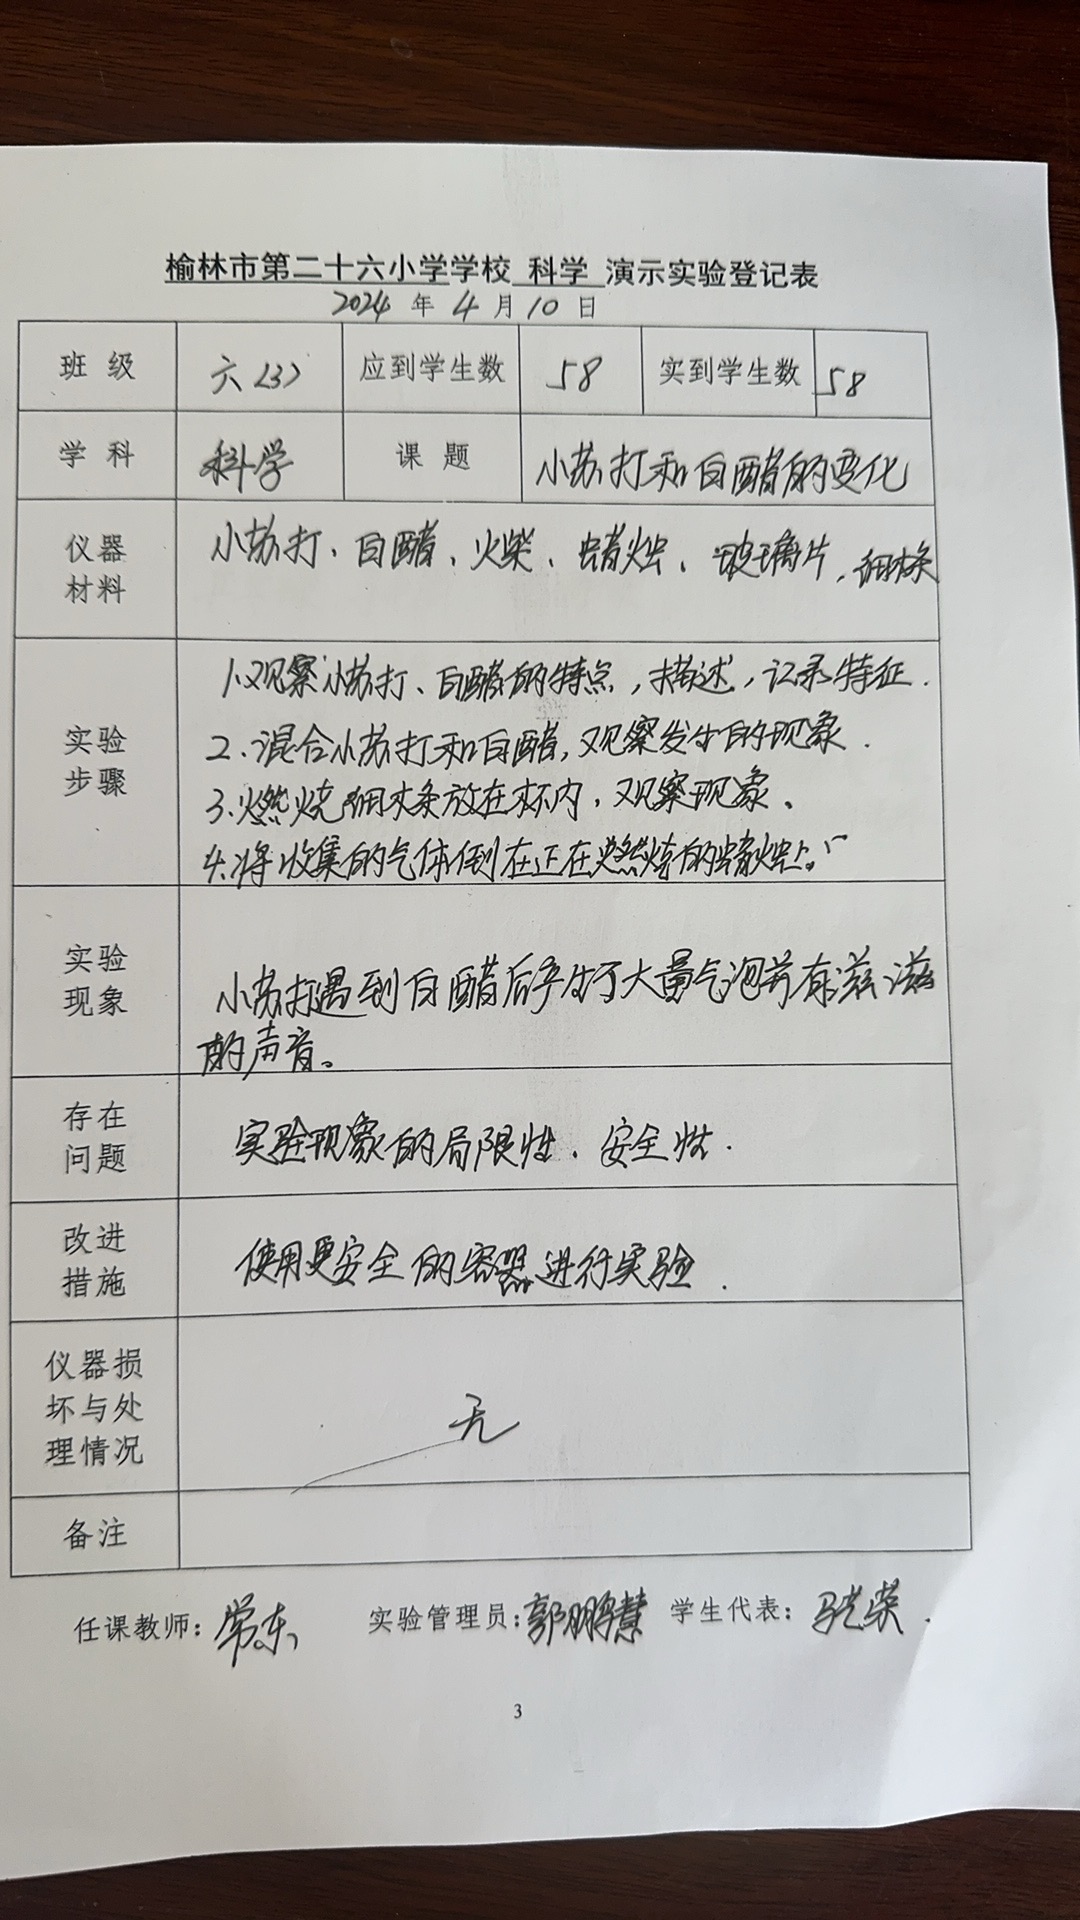 榆林市第二十六小学学校 科学 演示实验登记表
2024 年 4 月 10 日
班 级 六(3) 应到学生数 58 实到学生数 58
学 科 科学 课 题 小苏打和白醋的变化
仪器
材料
小苏打、白醋、火柴、蜡烛、玻璃片、细木条
实验
步骤
1.观察小苏打、白醋的特点,描述,记录特征.
2.混合小苏打和白醋,观察发生的现象.
3.燃烧细木条放在杯内,观察现象。
4.将收集的气体倒在正在燃烧的蜡烛上。
实验
现象
小苏打遇到白醋后产生了大量气泡并有滋滋
的声音。
存在
问题
实验现象的局限性、安全性.
改进
措施
使用更安全的容器进行实验.
仪器损
坏与处
理情况
无
备注
任课教师:常东 实验管理员:郭鹏慧 学生代表:
3